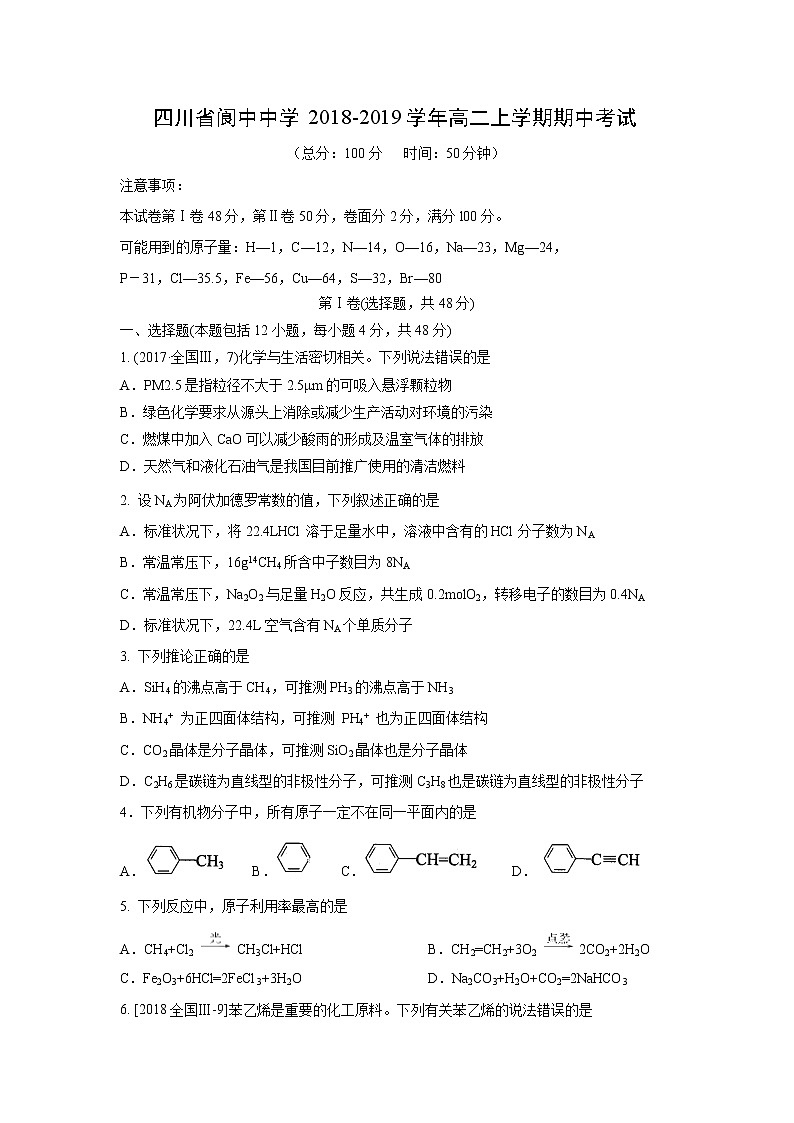 四川省阆中中学 2018-2019学年高二上学期期中考试
（总分：100 分 时间：50 分钟）
注意事项：
本试卷第Ⅰ卷 48 分，第Ⅱ卷 50 分，卷面分 2 分，满分 100 分。
可能用到的原子量：H—1，C—12，N—14，O—16，Na—23，Mg—24，
P－31，Cl—35.5，Fe—56，Cu—64，S—32，Br—80
第Ⅰ卷(选择题，共 48 分)
一、选择题(本题包括 12 小题，每小题 4 分，共 48 分)
1. (2017·全国Ⅲ，7)化学与生活密切相关。下列说法错误的是
A．PM2.5 是指粒径不大于 2.5μm 的可吸入悬浮颗粒物
B．绿色化学要求从源头上消除或减少生产活动对环境的污染
C．燃煤中加入 CaO 可以减少酸雨的形成及温室气体的排放
D．天然气和液化石油气是我国目前推广使用的清洁燃料
2. 设 NA 为阿伏加德罗常数的值，下列叙述正确的是
A．标准状况下，将 22.4LHCl 溶于足量水中，溶液中含有的 HCl 分子数为 NA
B．常温常压下，16g¹⁴CH₄ 所含中子数目为 8NA
C．常温常压下，Na₂O₂ 与足量 H₂O 反应，共生成 0.2molO₂，转移电子的数目为 0.4NA
D．标准状况下，22.4L 空气含有 NA 个单质分子
3. 下列推论正确的是
A．SiH₄ 的沸点高于 CH₄，可推测 PH₃ 的沸点高于 NH₃
B．NH₄⁺ 为正四面体结构，可推测 PH₄⁺ 也为正四面体结构
C．CO₂ 晶体是分子晶体，可推测 SiO₂ 晶体也是分子晶体
D．C₂H₆ 是碳链为直线型的非极性分子，可推测 C₃H₈ 也是碳链为直线型的非极性分子
4．下列有机物分子中，所有原子一定不在同一平面内的是
A. —CH₃ B. C. —CH=CH₂ D. —C≡CH
5. 下列反应中，原子利用率最高的是
A．CH₄+Cl₂ 光→ CH₃Cl+HCl B．CH₂=CH₂+3O₂ 点燃→ 2CO₂+2H₂O
C．Fe₂O₃+6HCl=2FeCl₃+3H₂O D．Na₂CO₃+H₂O+CO₂=2NaHCO₃
6. [2018 全国Ⅲ-9]苯乙烯是重要的化工原料。下列有关苯乙烯的说法错误的是